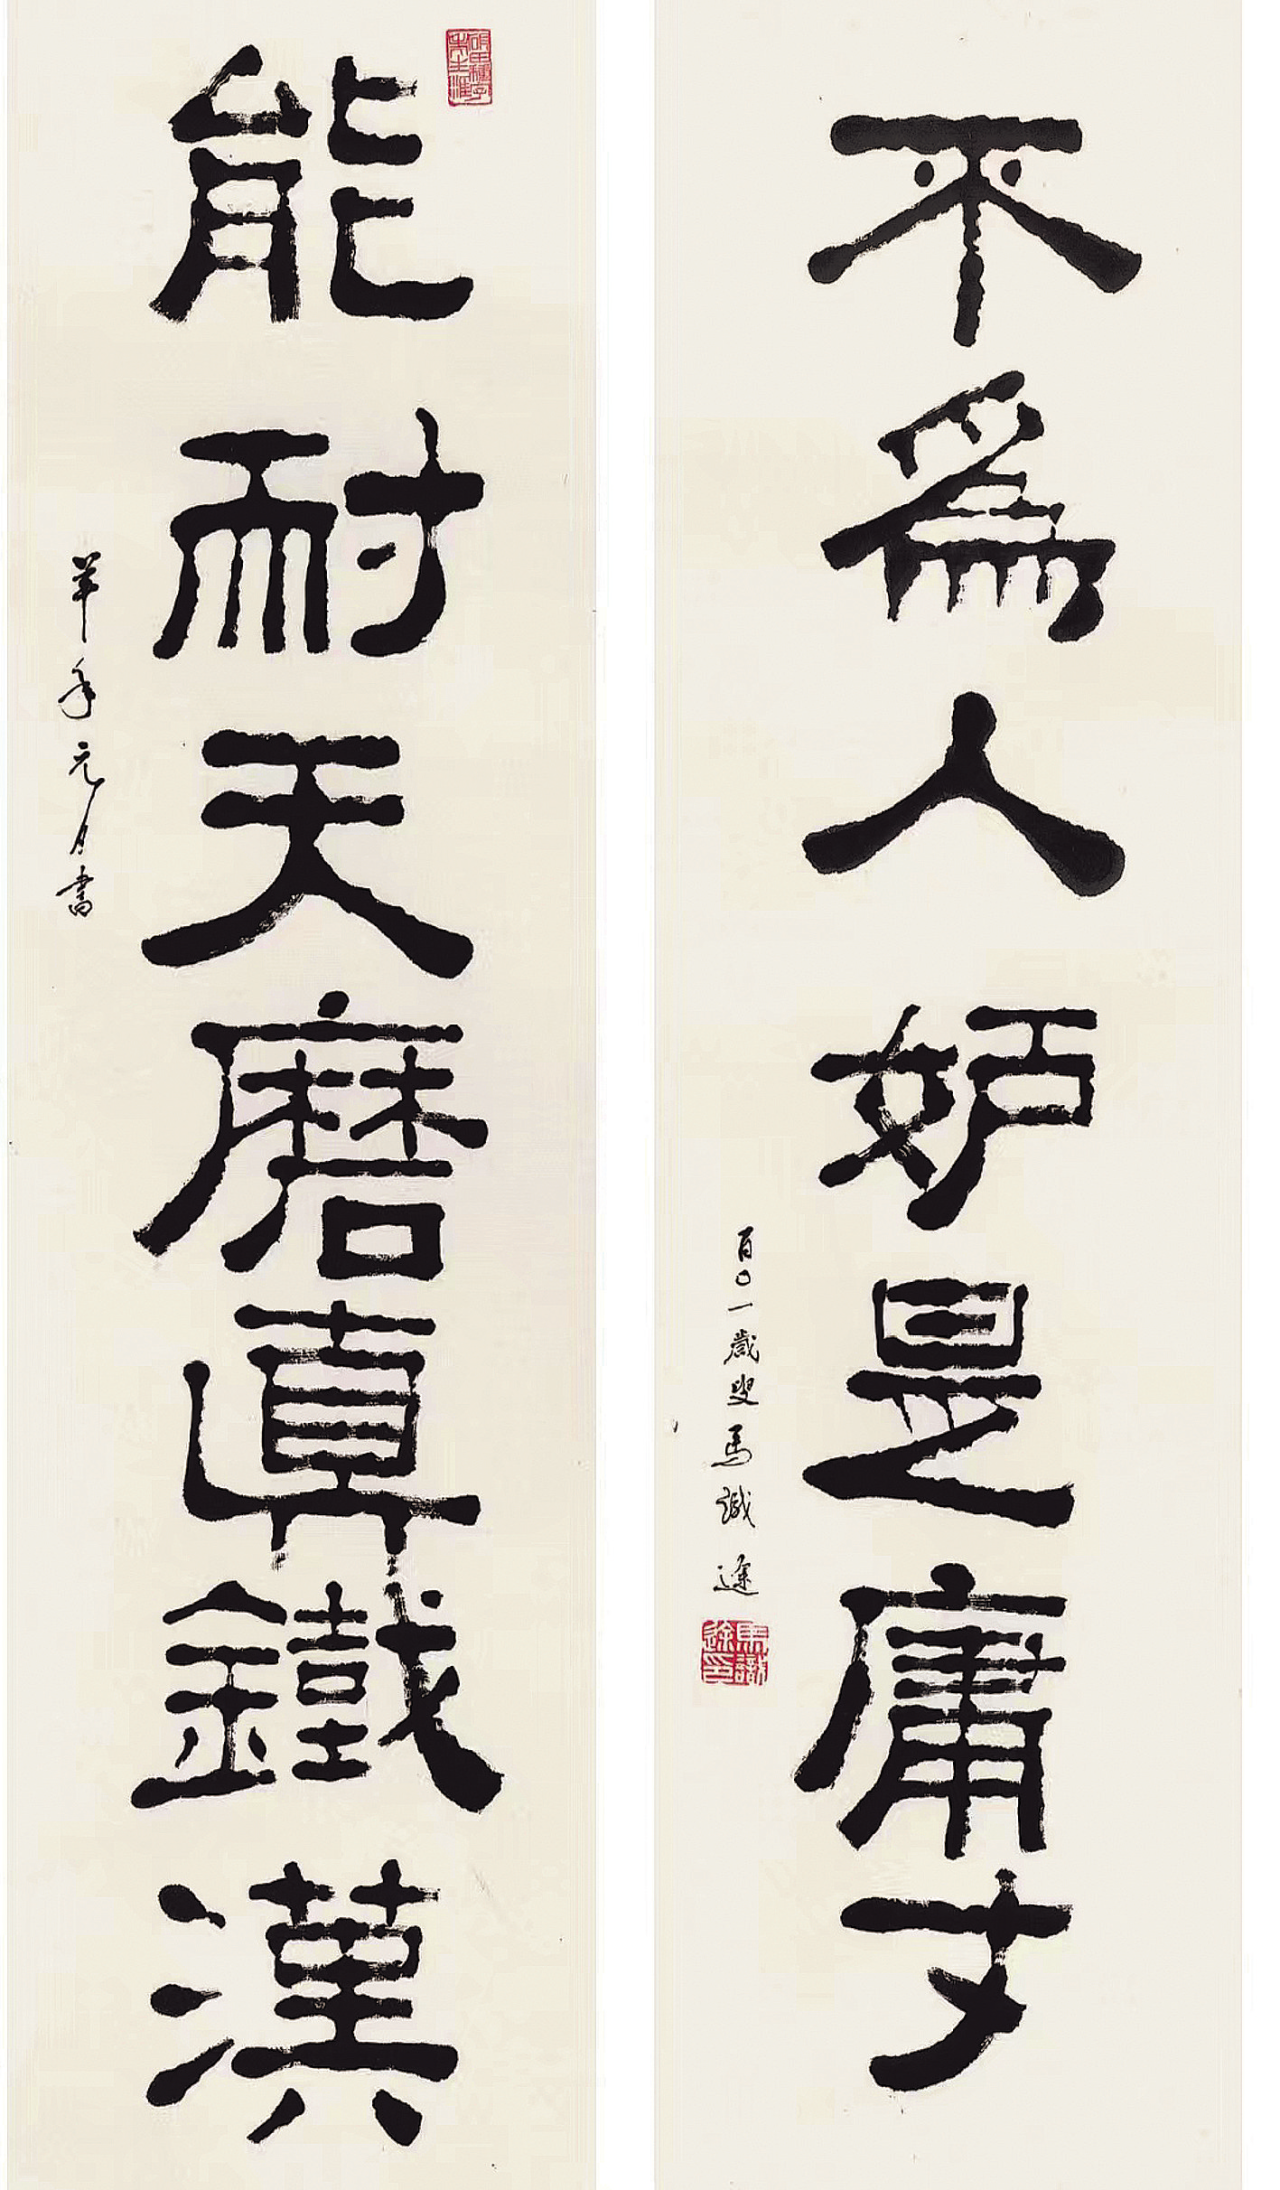 不為人妒是庸才
百〇一歲叟馬識途
馬識途印
能耐天磨真鐵漢
羊年元月書